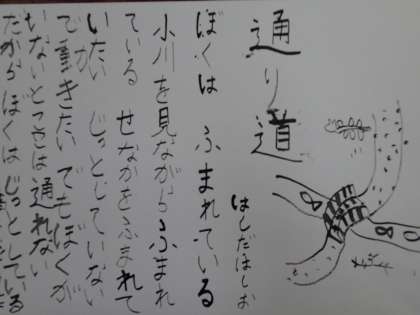 通り道
はしだはしお
ぼくは ふまれている
小川を見ながらふまれ
ている せなかをふまれて
いたい じっとしていない
で動きたい でもぼくが
いないときは通れない
だからぼくは じっとしている